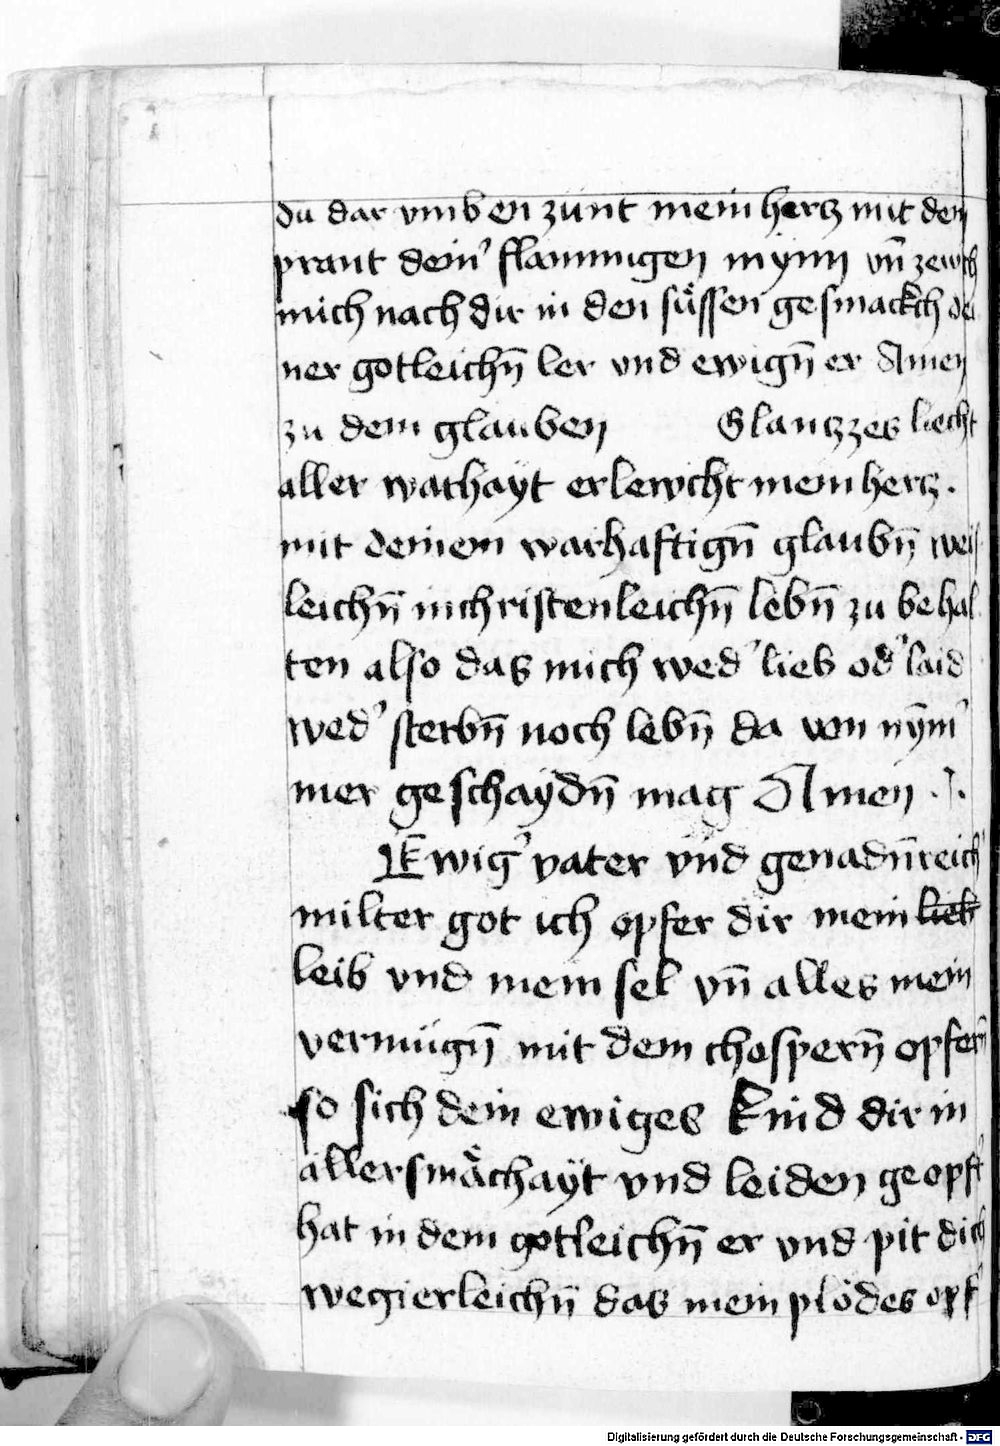 du dar vmb en zunt mein hertz mit dem
prant dein' flammigen mynn vn̄ zewch
mich nach dir in den süssen gesmackch dei
ner gotleichn̄ ler vnd ewign̄ er Amen
zu dem glauben Glantzzes liecht
aller wathayt erlewcht mein hertz.
mit deinem warhaftign̄ glaubn̄ weis
leichn̄ in christenleichn̄ lebn̄ zu behal
ten also das mich wed' lieb od' laid
wed' sterbn̄ noch lebn̄ da von nȳm'
mer geschaydn̄ mag Amen
Ewig' vater vnd genadn̄reich'
milter got ich opfer dir mein lieb
leib vnd mein sel vn̄ alles mein
vermügn̄ mit dem chospern̄ opfern̄
so sich dein ewiges kind dir in
aller smächayt vnd leiden geopft'
hat in dem gotleichn̄ er vnd pit dich
wegierleichn̄ das mein plödes opf'
Digitalisierung gefördert durch die Deutsche Forschungsgemeinschaft - DFG